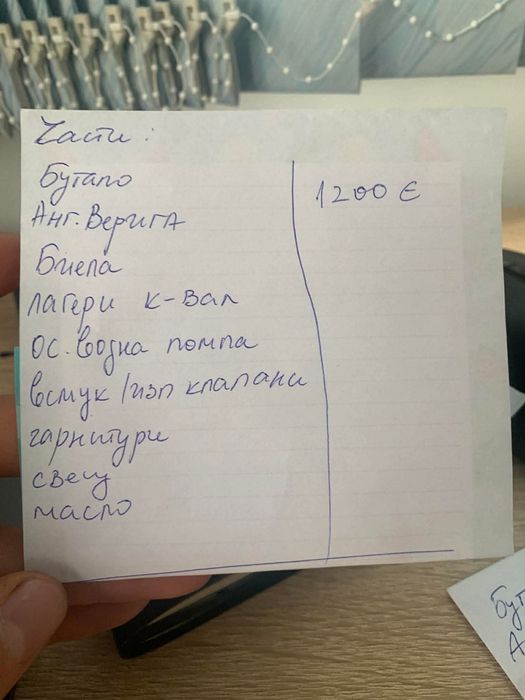 Части:
Бутало
1200 €
Анг. Верига
Биела
лагери к-вал
ос. водна помпа
всмук/изп клапани
гарнитури
свещ
масло
Бут
А